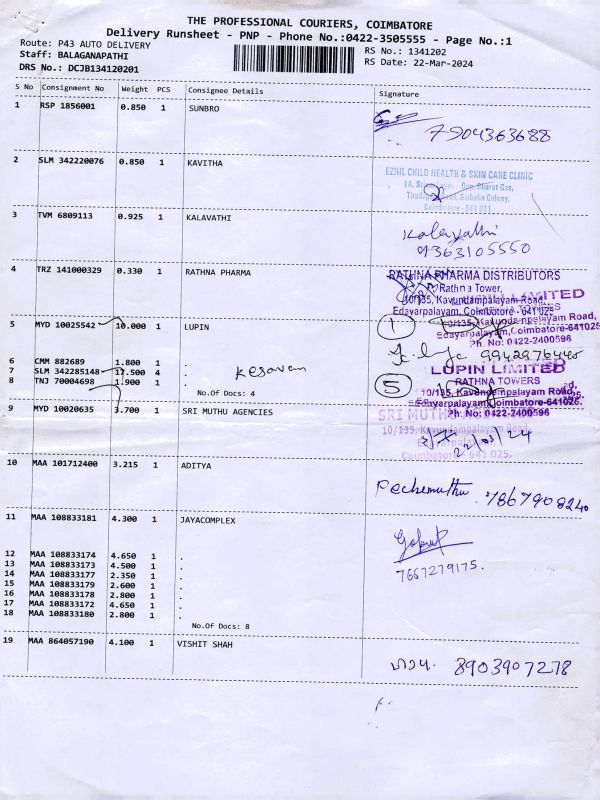 THE PROFESSIONAL COURIERS, COIMBATORE
Delivery Runsheet - PNP - Phone No.:0422-3505555 - Page No.:1
Route: P43 AUTO DELIVERY
RS No.: 1341202
Staff: BALAGANAPATHI
RS Date: 22-Mar-2024
DRS No.: DCJB134120201
S No Consignment No Weight PCS Consignee Details Signature
1 RSP 1856001 0.850 1 SUNBRO
7904363688
2 SLM 342220076 0.850 1 KAVITHA
EZHIL CHILD HEALTH & SKIN CARE CLINIC
Opp. Bharat Gas,
Saibaba Colony,
3 TVM 6809113 0.925 1 KALAVATHI
Kalavathi
9363105550
4 TRZ 141000329 0.330 1 RATHNA PHARMA
RATHNA PHARMA DISTRIBUTORS
Rathna Tower,
10/135, Kavundampalayam Road,
Edayarpalayam, Coimbatore - 641 025
LUPIN LIMITED
RATHNA TOWERS
10/135, Kavundampalayam Road,
Edayarpalayam, Coimbatore-641025
Ph. No: 0422-2400596
5 MYD 10025542 10.000 1 LUPIN
1
6 CMM 882689 1.800 1 .
7 SLM 342285148 17.500 4 .
Kesavan
8 TNJ 70004698 1.900 1 .
No.Of Docs: 4
LUPIN LIMITED
RATHNA TOWERS
10/135, Kavundampalayam Road,
Edayarpalayam, Coimbatore-641025.
Ph. No: 0422-2400596
5
9 MYD 10020635 3.700 1 SRI MUTHU AGENCIES
SRI MUTHU
10/135, Kavundampalayam Road,
Coimbatore - 641 025.
22/03/24
10 MAA 101712400 3.215 1 ADITYA
Pechimuthu. 7867908240
11 MAA 108833181 4.300 1 JAYACOMPLEX
7667279175.
12 MAA 108833174 4.650 1 .
13 MAA 108833173 4.500 1 .
14 MAA 108833177 2.350 1 .
15 MAA 108833179 2.600 1 .
16 MAA 108833178 2.800 1 .
17 MAA 108833172 4.650 1 .
18 MAA 108833180 2.800 1 .
No.Of Docs: 8
19 MAA 864057190 4.100 1 VISHIT SHAH
8903907278